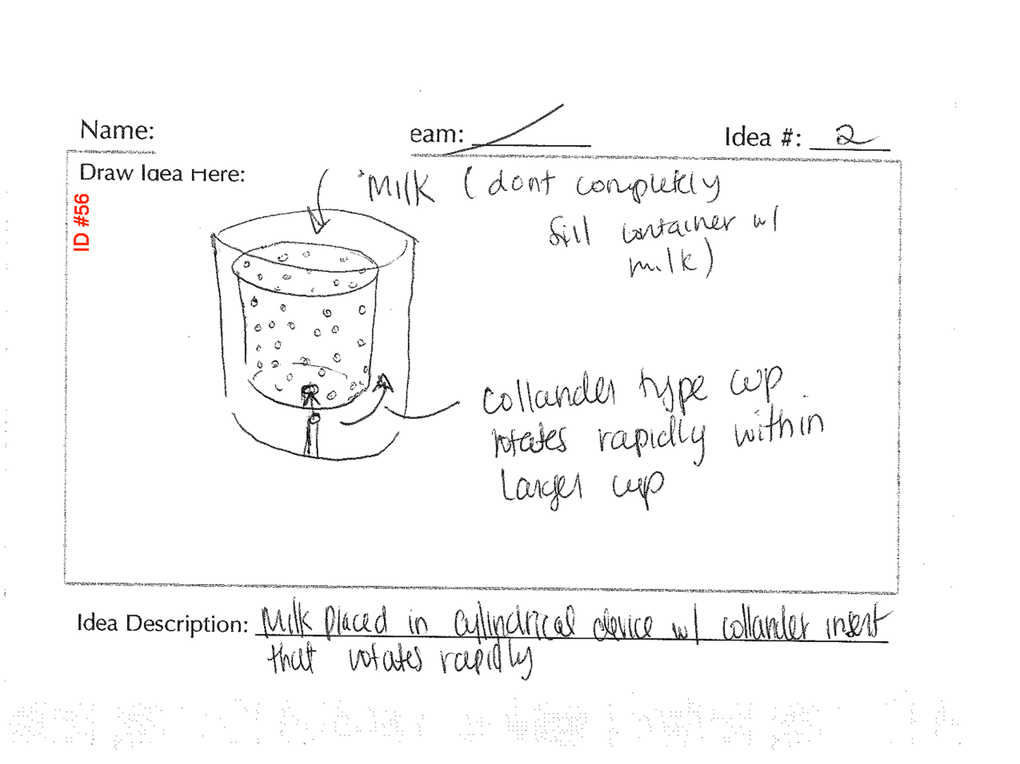 Name:
eam:
Idea #: 2
Draw Idea Here:
ID #56
Milk (dont completely
fill container w/
milk)
collander type cup
rotates rapidly within
larger cup
Idea Description: Milk placed in cylindrical device w/ collander insert
that rotates rapidly